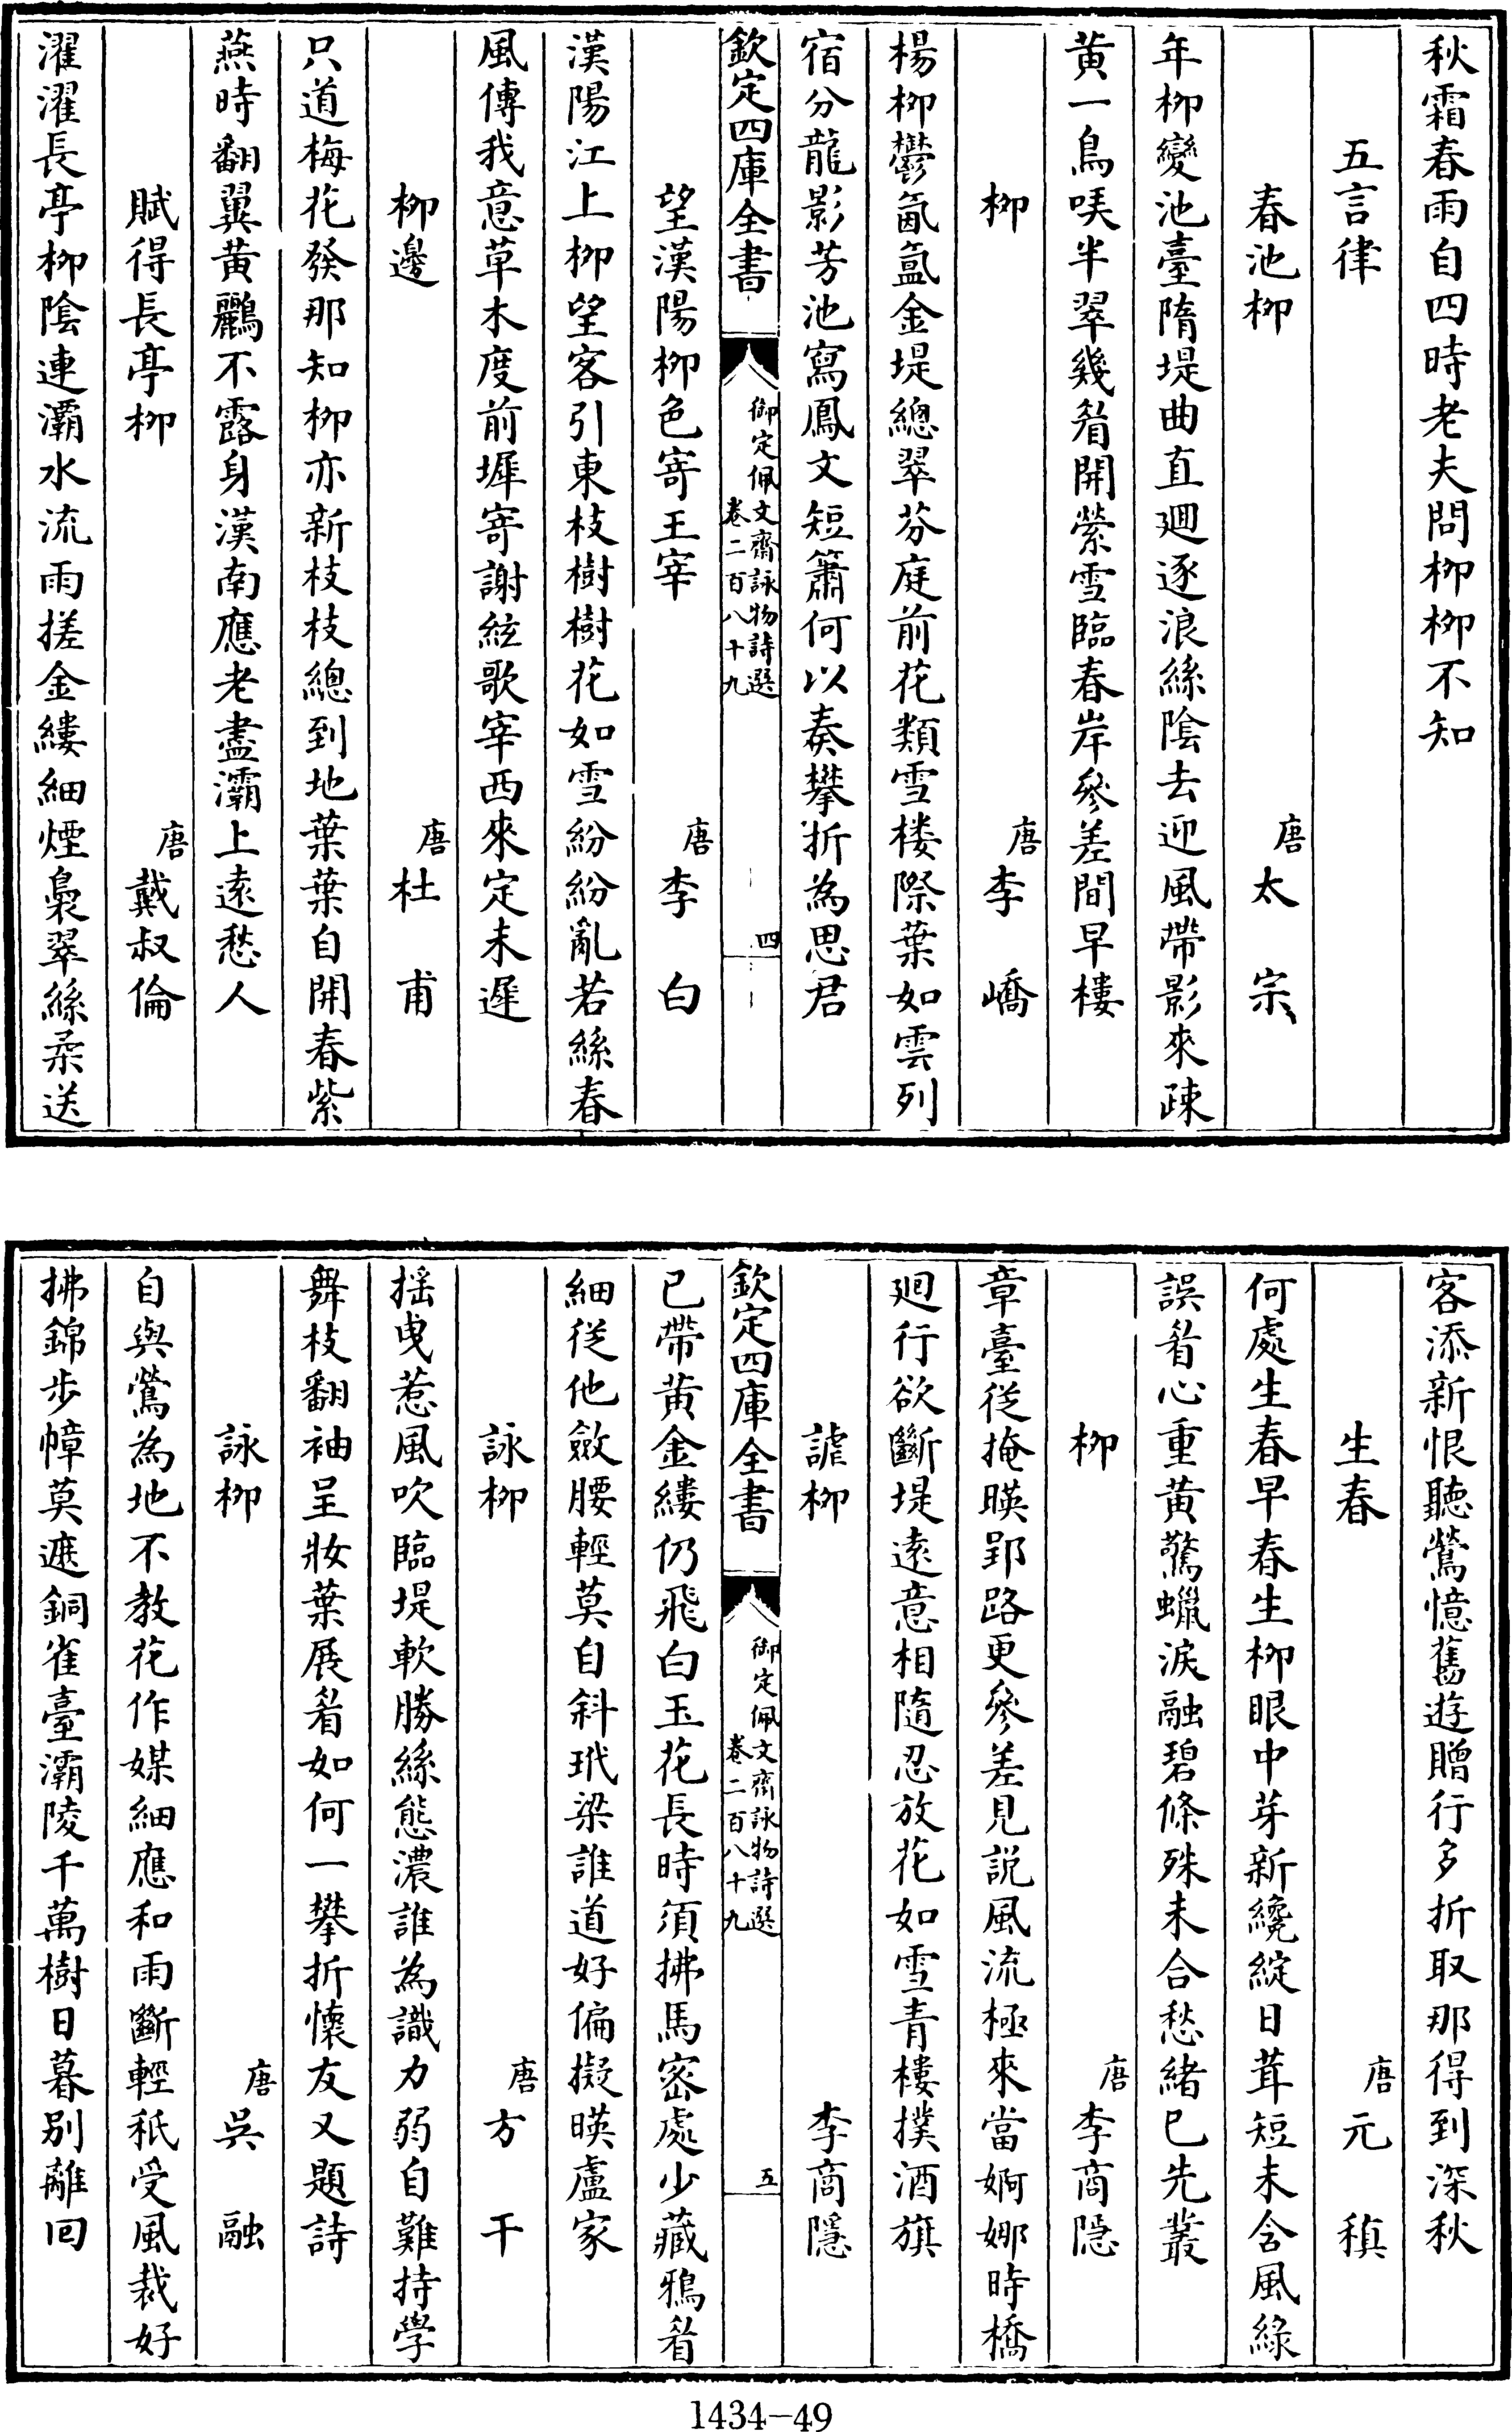 秋霜春雨自四時老夫問柳柳不知
五言律
春池柳　唐太宗
年柳變池臺隋堤曲直迴逐浪絲陰去迎風帶影來疎
黄一鳥哢半翠幾眉開縈雪臨春岸參差間早樓
柳　唐李嶠
楊柳鬱氤氲金堤總翠芬庭前花類雪楼際葉如雲列
宿分龍影芳池寫鳳文短簫何以奏攀折為思君
欽定四庫全書　御定佩文齋詠物詩選卷二百八十九　四
望漢陽柳色寄王宰　唐李白
漢陽江上柳望客引東枝樹樹花如雪紛紛亂若絲春
風傳我意草木度前墀寄謝絃歌宰西來定未遲
柳邊　唐杜甫
只道梅花發那知柳亦新枝枝總到地葉葉自開春紫
燕時翻翼黄鸝不露身漢南應老盡灞上遠愁人
賦得長亭柳　唐戴叔倫
濯濯長亭柳陰連灞水流雨搓金縷細煙裊翠絲柔送
客添新恨聽鶯憶舊遊贈行多折取那得到深秋
生春　唐元稹
何處生春早春生柳眼中芽新纔綻日茸短未含風綠
誤眉心重黄驚蠟淚融碧條殊未合愁緒已先叢
柳　唐李商隱
章臺従掩暎郢路更參差見説風流極來當婀娜時橋
迴行欲斷堤遠意相隨忍放花如雪青樓撲酒旗
謔柳　李商隱
欽定四庫全書　御定佩文齋詠物詩選卷二百八十九　五
已帶黄金縷仍飛白玉花長時須拂馬密處少藏鴉眉
細従他斂腰輕莫自斜玳梁誰道好偏擬暎盧家
詠柳　唐方干
摇曳惹風吹臨堤軟勝絲態濃誰為識力弱自難持學
舞枝翻袖呈妝葉展眉如何一攀折懷友又題詩
詠柳　唐吳融
自與鶯為地不教花作媒細應和雨斷輕秪受風裁好
拂錦步幛莫遮銅雀臺灞陵千萬樹日暮别離回
1434-49